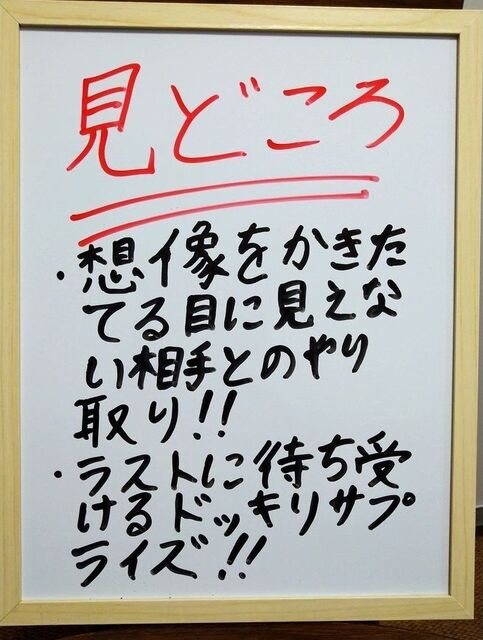 見どころ
・想像をかきた
てる目に見えな
い相手とのやり
取り!!
・ラストに待ち受
けるドッキリサプ
ライズ!!